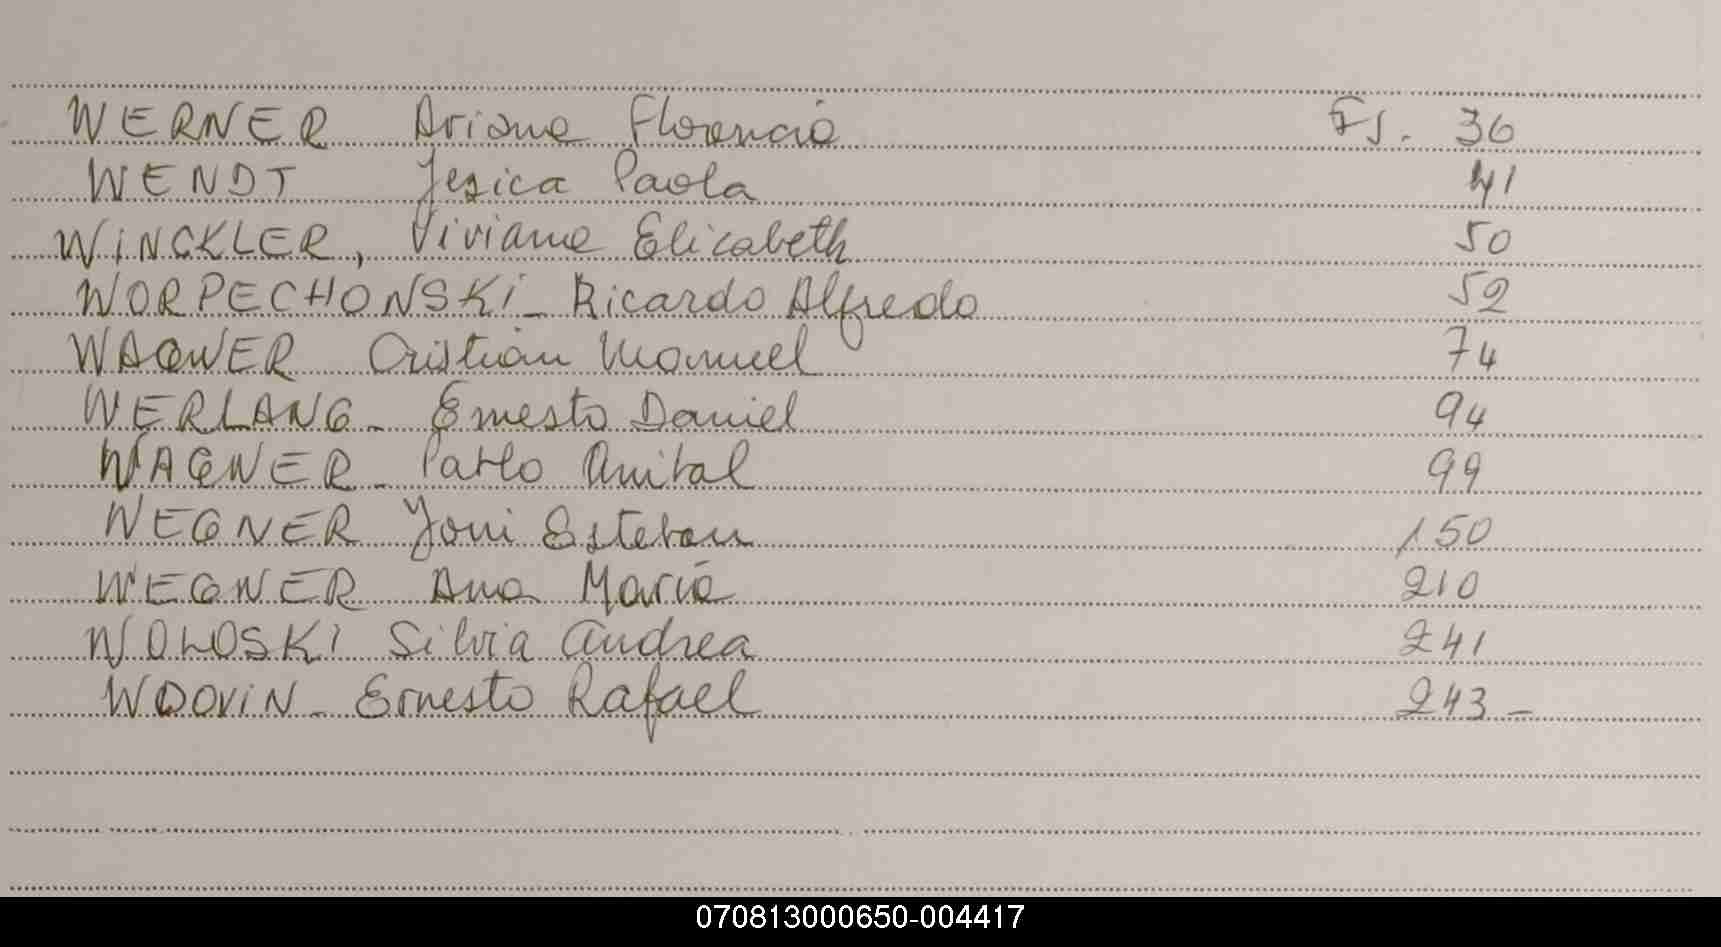 WERNER Ariana Florencia Fs. 36
WENDT Jesica Paola 41
WINCKLER, Viviana Elizabeth 50
WORPECHONSKI - Ricardo Alfredo 52
WAGNER Cristian Manuel 74
WERLANG - Ernesto Daniel 94
WAGNER - Pablo Anibal 99
WEGNER Yoni Esteban 150
WEGNER Ana María 210
WOLOSKI Silvia Andrea 241
WDOVIN - Ernesto Rafael 243 -
070813000650-004417